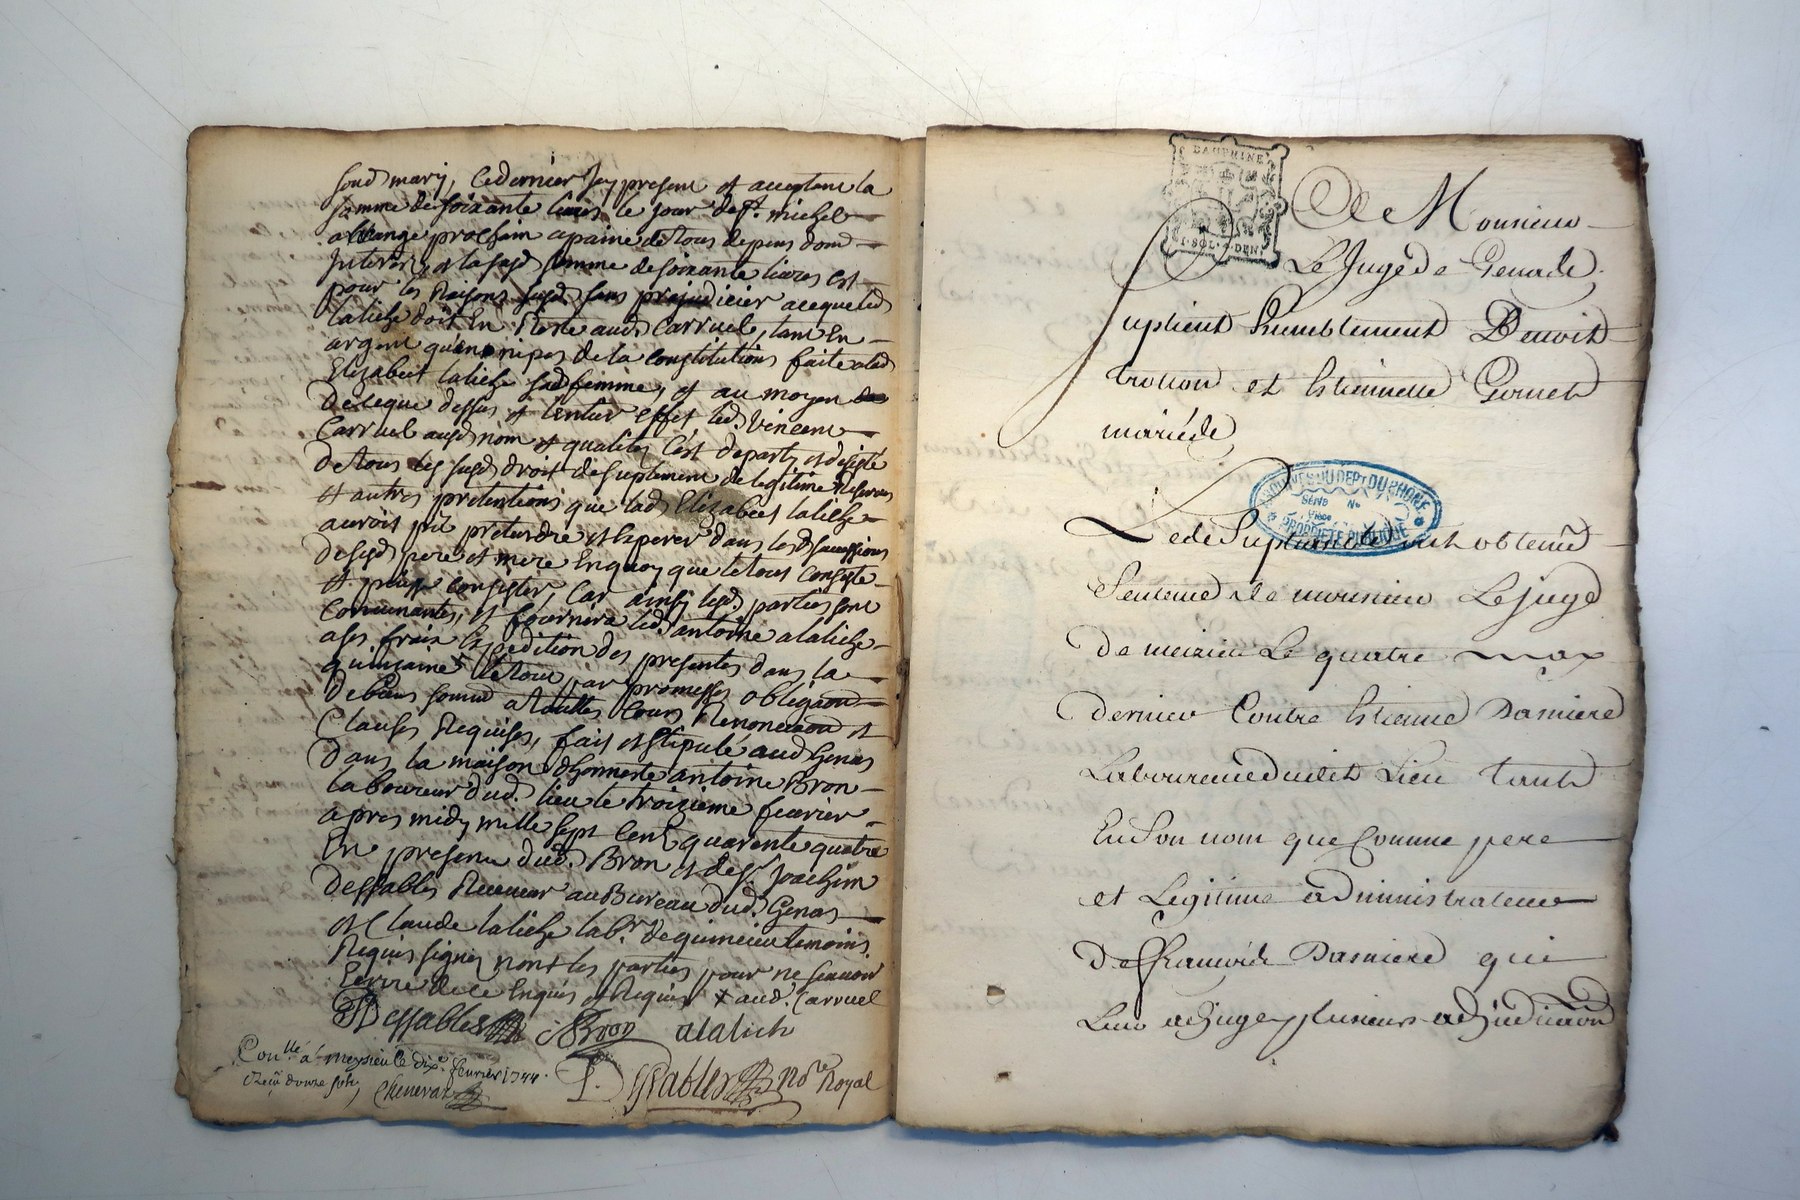 sond mary, ledernier jcy present et acceptant la
somme de soixante livres le jour de st. michel
archange prochain a paine de tous depens dom
Interest, et lasusd somme de soixante livres est
pour les Raisons susd sans prejudicier aceque led
laliche doit En Reste aud Carruel, tant En
argent qu'en nipes de la Constitution faite alad
Elizabeet laliche sad femme, et au moyen
de ceque dessus et lentier effet, led. vincent
Carruel ausd nom et qualites s'est departy et desisté
de tous les susd droit de suplement de legitime Reserves
et autres pretentions que lad Elizabeet laliche
auroit put pretendre et Esperer dans lesd successions
desesd pere et mere En quoy que le tout Consiste
et puisse consister, Car ainsy lesd. parties sont
Convenantes, et fournira led. antoine alaliche
ases fraix Expedition des presentes dans la
quinzaine, le tout par promesses obligaon
de biens soumis atouttes Cours Renonciaon et
Clauses Requises, fait et stipulé aud Genas
Dans la maison d'honneste antoine Bron
laboureur dud. lieu le troizieme fevrier
apres midy mille sept Cent quarante quatre
En presence dud. Bron et de sr. Joachim
Dessables Receveur au Bureau dud. Genas
et Claude laliche labr. de quincieu temoins
Requis signes non les parties pour ne scavoir
Ecrire de ce Enquis et Requis x aud. Carruel
Dessables Bron alalich
Conlle a meysieu le dixe. fevrier 1744.
Reçu douze sols, Chenevaz
Dessables Nore Royal
DAUPHINE
SOL DEN
Monsieur
Le Juge de Genas
Suplient humblement Benoit
trolion et Estiennette Gonet
mariés
ARCHIVES DU DEPT DU RHONE
Série No
Pièce
PROPRIÉTÉ PUBLIQUE
obtenu
Sentence de monsieur Le juge
De meizieu Le quatre
Dernier Contre Estienne Damiere
Laboureur dudit Lieu tant
En Son nom que Comme pere
et Legitime administrateur
De François Damiere qui
Leur adjuge plusieurs adjudicaon